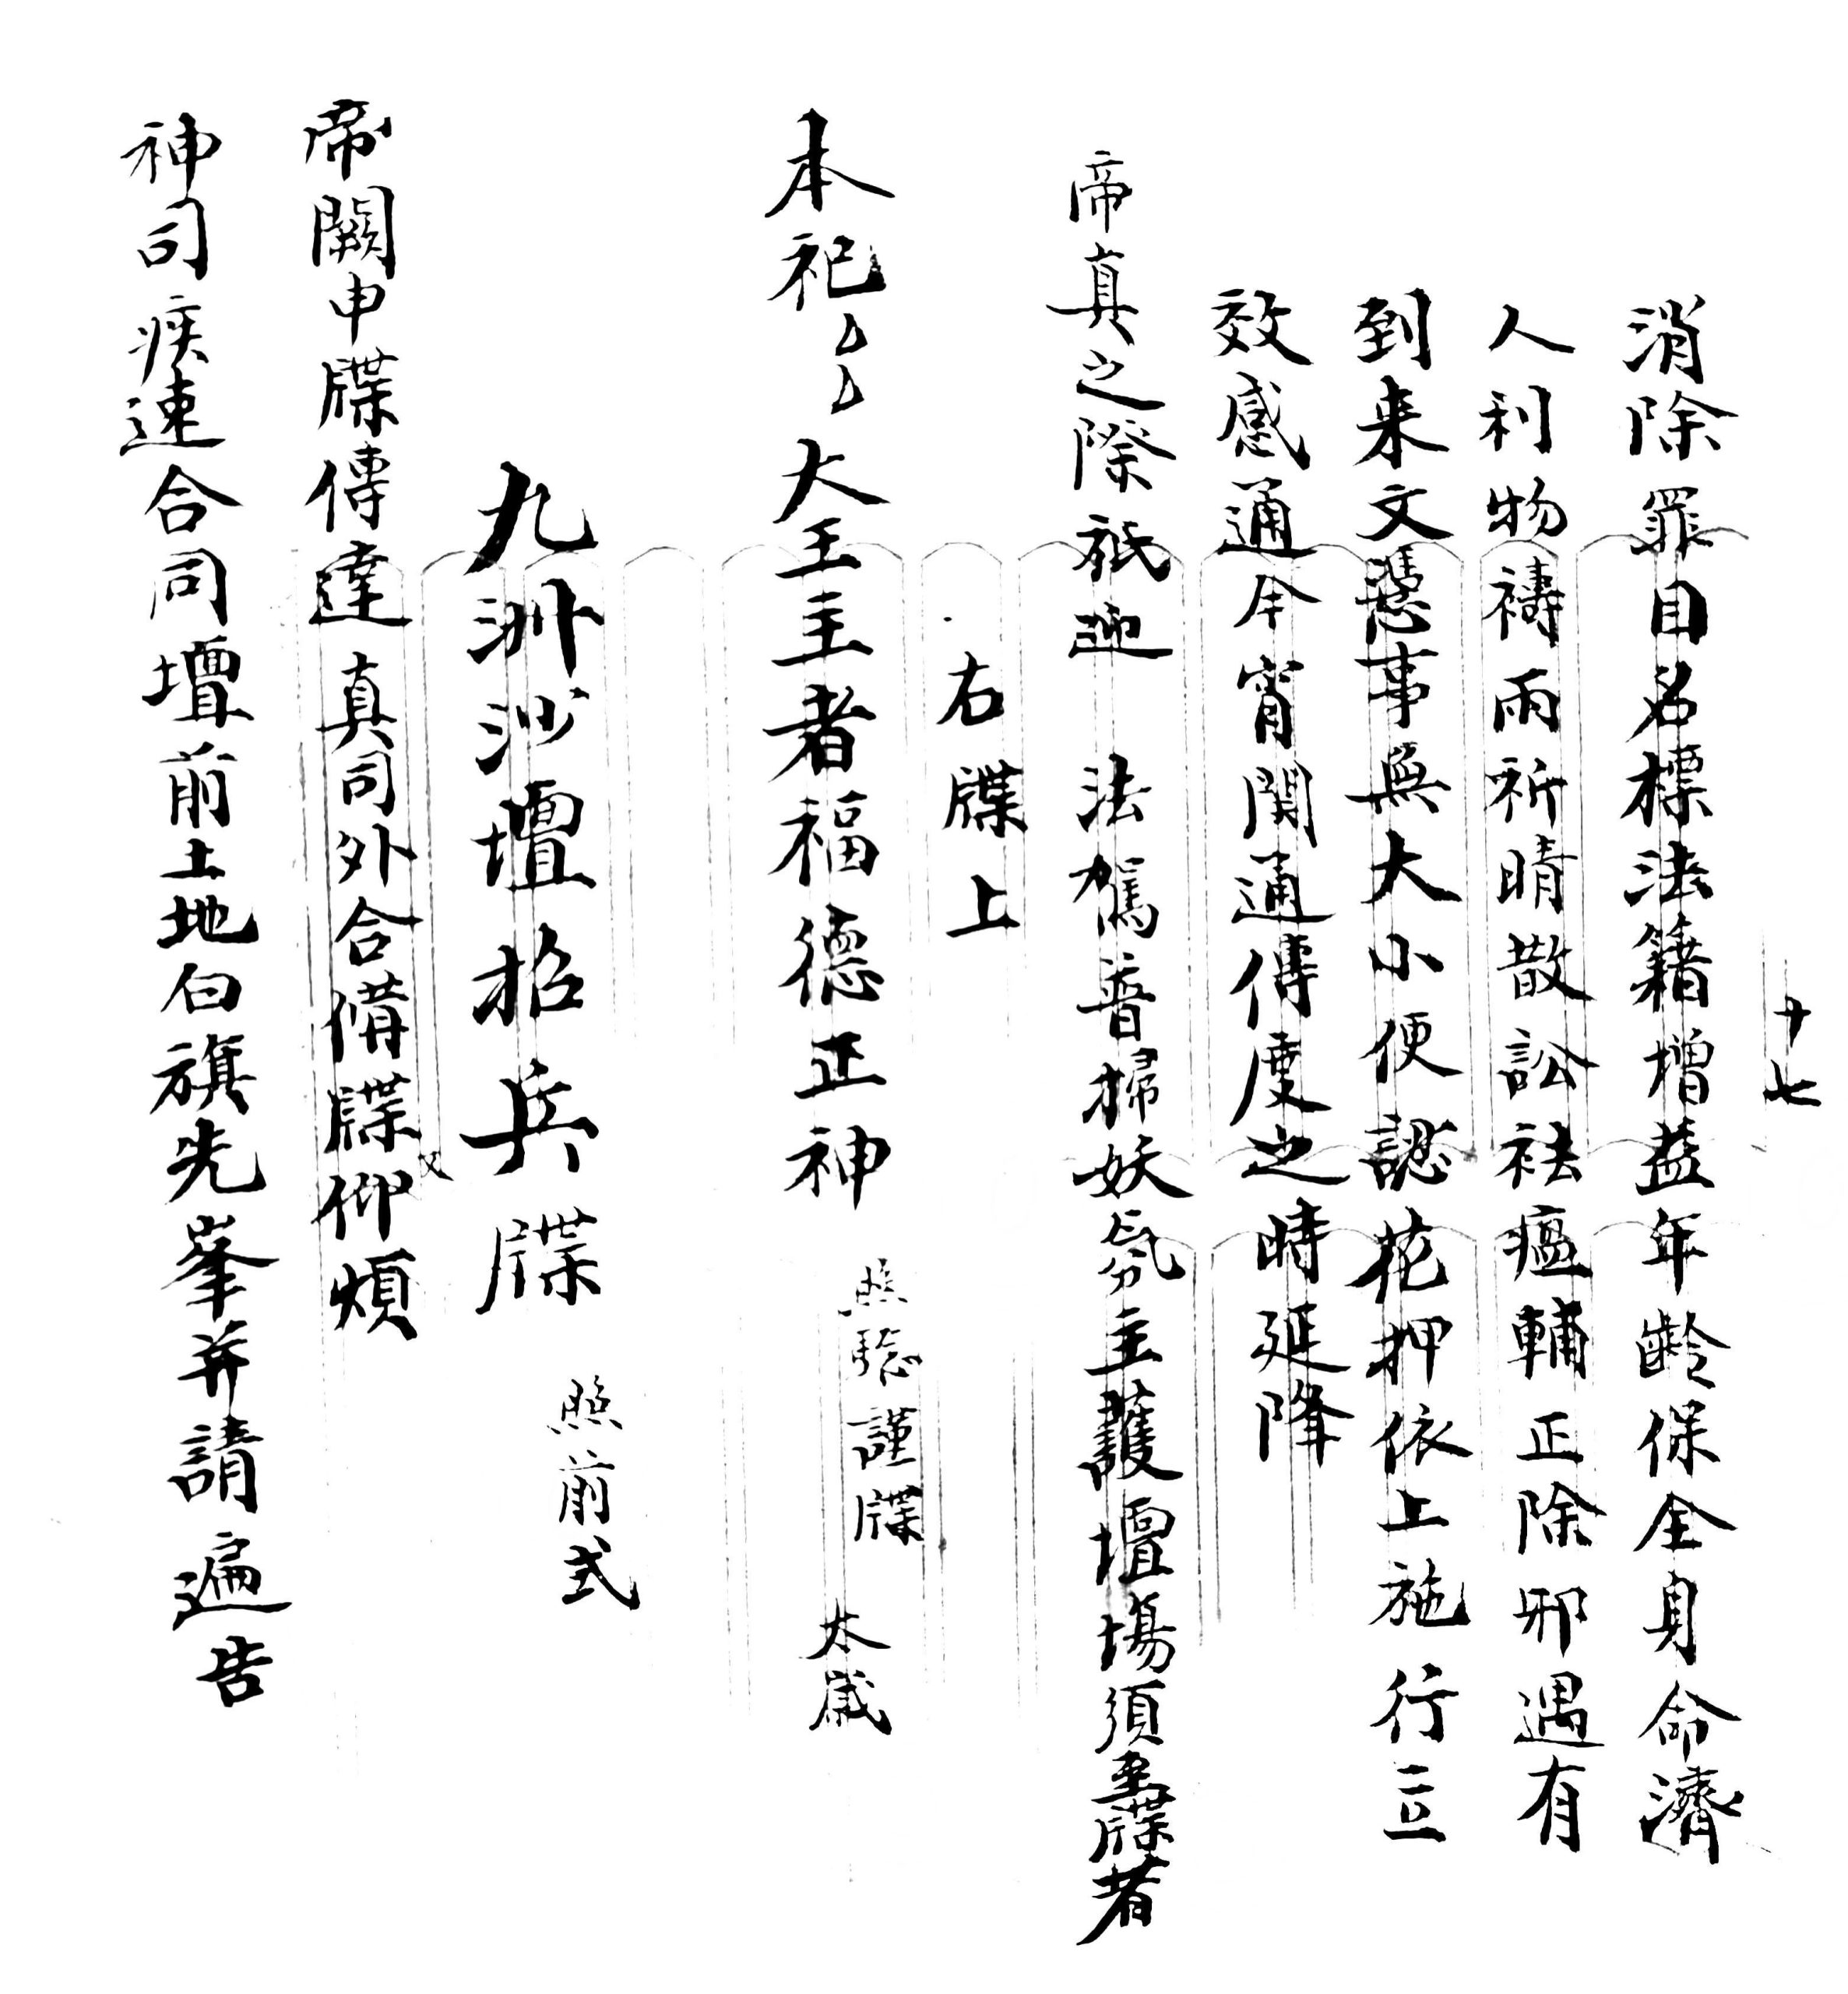 十七
消除罪目名標法籍增益年齡保全身命濟
人利物禱雨祈晴散訟祛瘟輔正除邪遇有
到来文憑事無大小便認花押依上施行立
效感通今宵関通傳度之時延降
帝真之際祇迎　法駕普掃妖氛主護壇場須至牒者
右牒上
本祀厶厶大王主者福德正神　照驗謹牒　太歲
九洲沙壇招兵牒　照前式
帝闕申牒傳達真司外合備牒仰煩
神司疾速合同壇前土地白旗先峯并請遍告